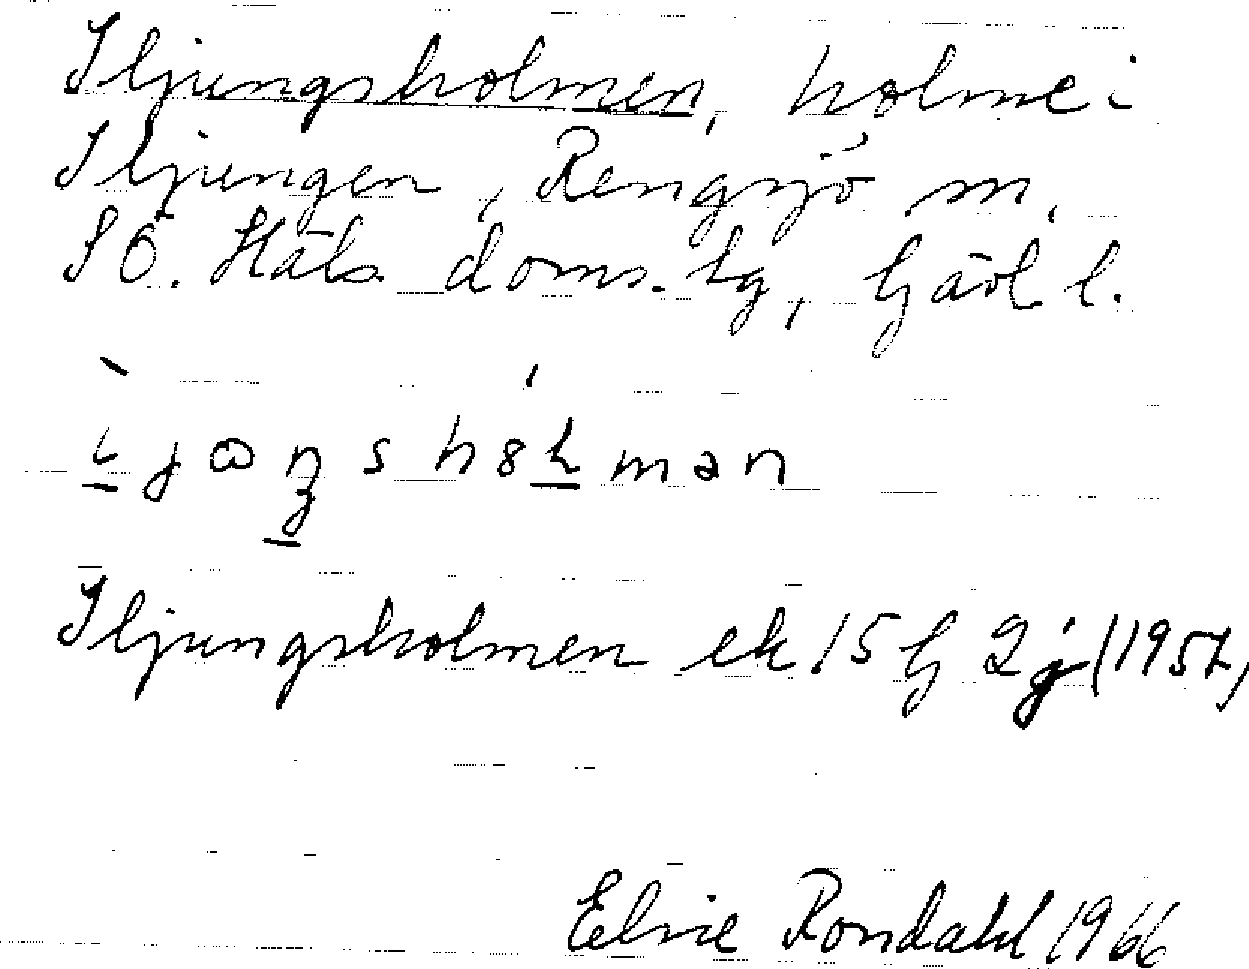 Iljungsholmen, holme i
Iljungen, Rengsjö sn,
SÖ. Häls doms. tg, Gävl l.
Iljungsholmen ek 15 G 2j (1957)
Elvie Rondahl 1966